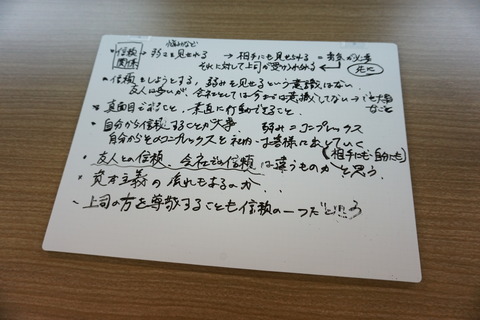 悩みなど
信頼関係 → 弱さを見せれる → 相手にも見せられる = 勇気が必要
それに対して上司が受け入れられる ← 先に
・信頼をしようとする、弱みを見せるという意識はない。
友人は多いが、会社としては今までは意識してない → でも大事なこと
・真面目であること、素直に行動できること。
・自分から信頼することが大事 弱み = コンプレックス
自分からそのコンプレックスを社内・お客様に出していく
(相手にも自分にも)
・友人との信頼、会社での信頼は違うものかと思う。
・資本主義の流れもあるのか...
・上司の方を尊敬することも信頼の一つだと思う